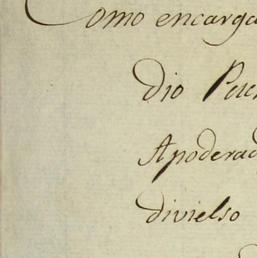 Como encarga
dio
Apoderad
divielso